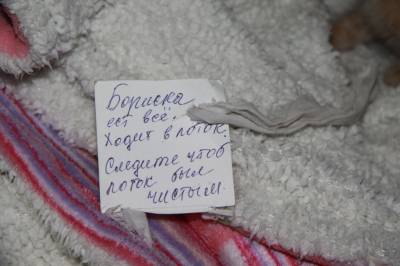 Бориска
ест всё.
Ходит в лоток.
Следите чтоб
лоток был
чистым.